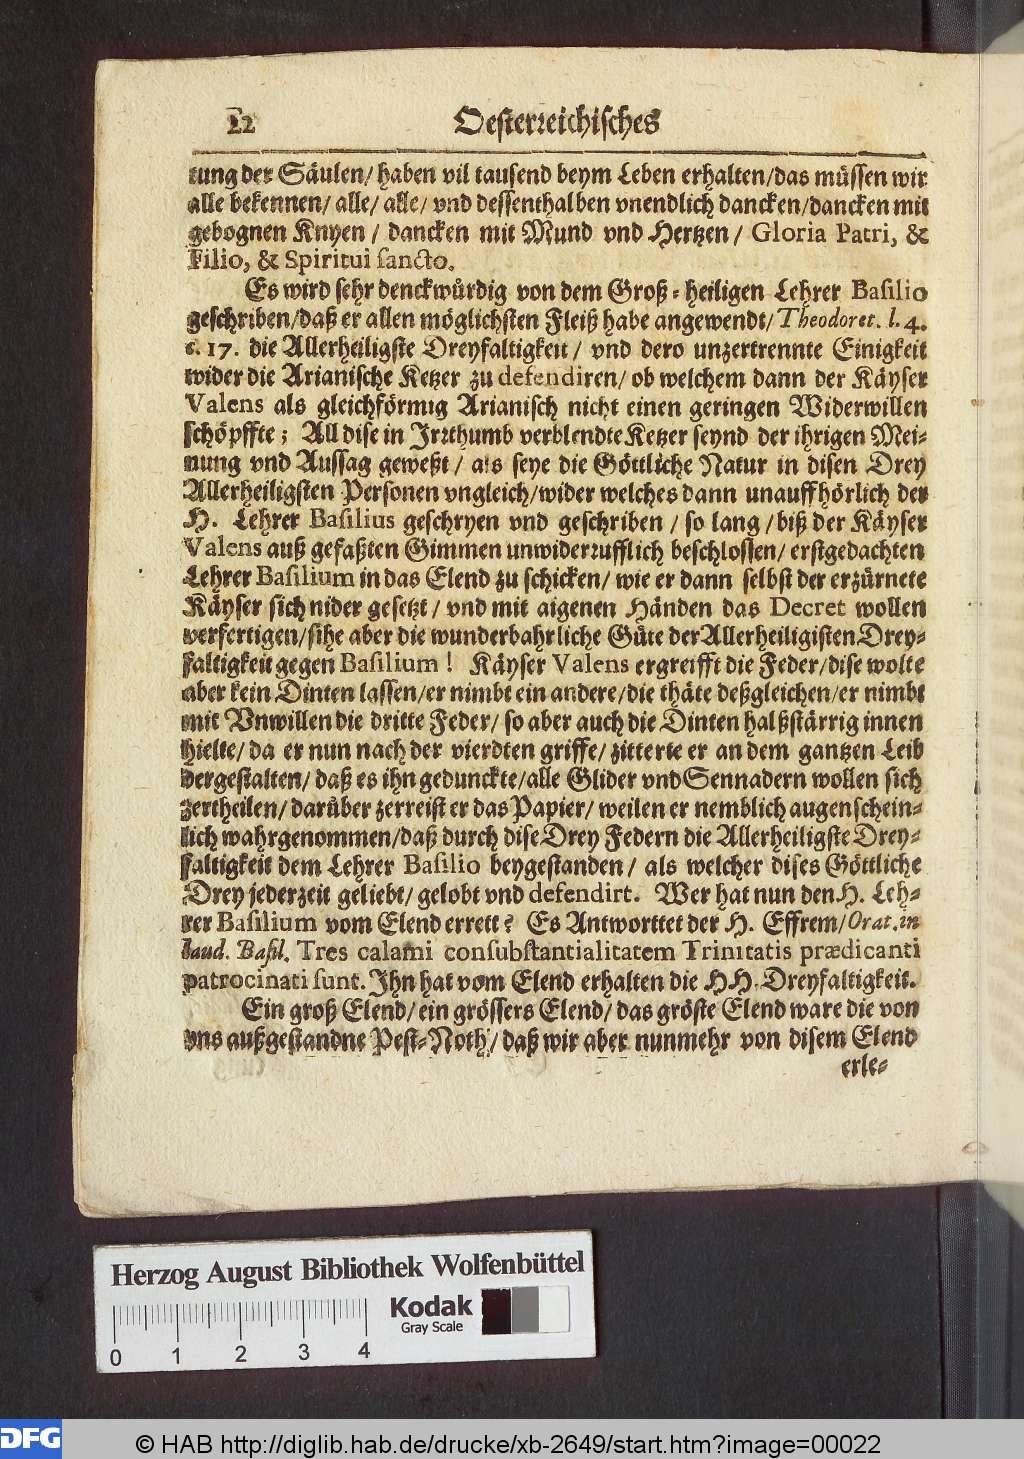 22 Oesterreichisches
tung der Säulen/ haben vil tausend beym Leben erhalten/das müssen wir
alle bekennen/ alle/ alle/ vnd dessenthalben vnendlich dancken/dancken mit
gebognen Knyen / dancken mit Mund vnd Hertzen / Gloria Patri, &
Filio, & Spiritui sancto.
Es wird sehr denckwürdig von dem Groß-heiligen Lehrer Basilio
geschriben/daß er allen möglichsten Fleiß habe angewendt/ Theodoret. l. 4.
c. 17. die Allerheiligste Dreyfaltigkeit / vnd dero unzertrennte Einigkeit
wider die Arianische Ketzer zu defendiren/ ob welchem dann der Käyser
Valens als gleichförmig Arianisch nicht einen geringen Widerwillen
schöpffte; All dise in Irrthumb verblendte Ketzer seynd der ihrigen Mei-
nung vnd Aussag geweßt / als seye die Göttliche Natur in disen Drey
Allerheiligsten Personen vngleich/wider welches dann unauffhörlich der
H. Lehrer Basilius geschryen vnd geschriben / so lang / biß der Käyser
Valens auß gefaßten Gimmen unwiderrufflich beschlossen/ erstgedachten
Lehrer Basilium in das Elend zu schicken/ wie er dann selbst der erzürnete
Käyser sich nider gesetzt / vnd mit aigenen Händen das Decret wollen
verfertigen/sihe aber die wunderbahrliche Güte der Allerheiligisten Drey-
faltigkeit gegen Basilium ! Käyser Valens ergreifft die Feder/dise wolte
aber kein Dinten lassen/er nimbt ein andere/die thäte deßgleichen/er nimbt
mit Vnwillen die dritte Feder/ so aber auch die Dinten halßstärrig innen
hielte/ da er nun nach der vierdten griffe/ zitterte er an dem gantzen Leib
dergestalten/ daß es ihn gedunckte/alle Glider vnd Sennadern wollen sich
zertheilen/ darüber zerreist er das Papier/ weilen er nemblich augenschein-
lich wahrgenommen/daß durch dise Drey Federn die Allerheiligste Drey-
faltigkeit dem Lehrer Basilio beygestanden / als welcher dises Göttliche
Drey jederzeit geliebt/ gelobt vnd defendirt. Wer hat nun den H. Leh-
rer Basilium vom Elend errett? Es Antworttet der H. Effrem/ Orat. in
laud. Basil. Tres calami consubstantialitatem Trinitatis prædicanti
patrocinati sunt. Ihn hat vom Elend erhalten die HH. Dreyfaltigkeit.
Ein groß Elend/ ein grössers Elend/ das gröste Elend ware die von
vns außgestandne Pest-Noth/ daß wir aber nunmehr von disem Elend
erle-
Herzog August Bibliothek Wolfenbüttel
Kodak
Gray Scale
0 1 2 3 4
DFG © HAB http://diglib.hab.de/drucke/xb-2649/start.htm?image=00022